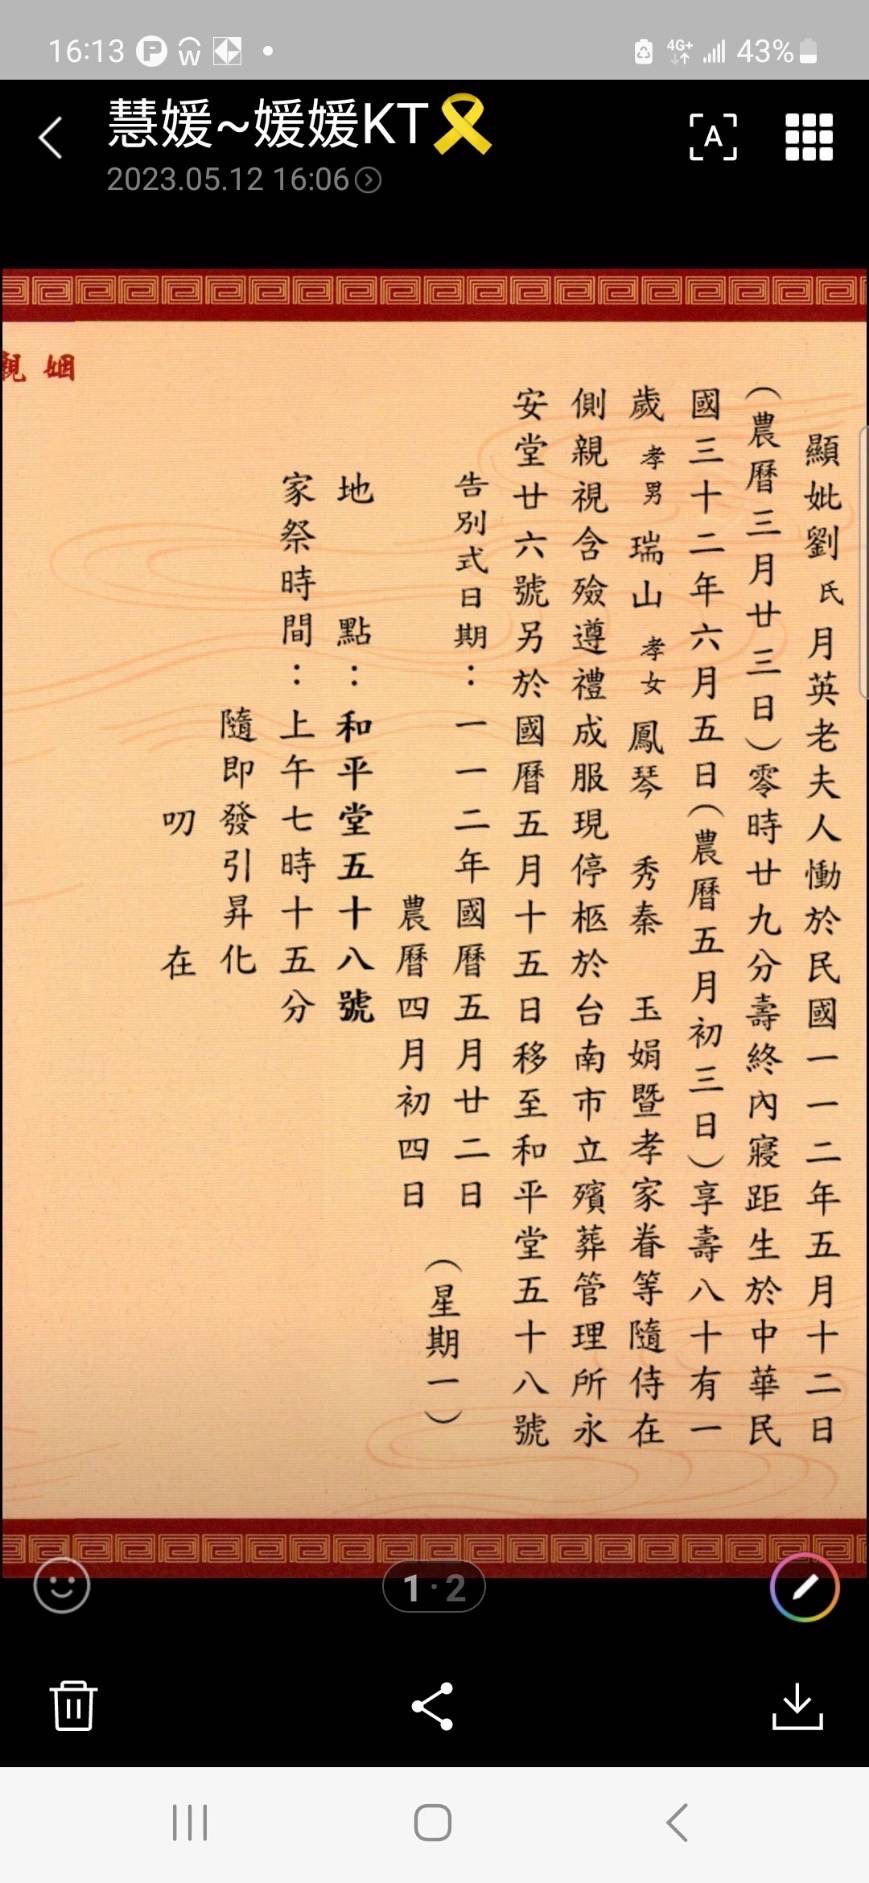 16:13
4G+ 43%
慧媛~媛媛KT
2023.05.12 16:06
A
顯妣劉氏月英老夫人慟於民國一一二年五月十二日
(農曆三月廿三日)零時廿九分壽終內寢距生於中華民
國三十二年六月五日(農曆五月初三日)享壽八十有一
歲孝男瑞山孝女鳳琴 秀秦 玉娟暨孝家眷等隨侍在
側親視含殮遵禮成服現停柩於台南市立殯葬管理所永
安堂廿六號另於國曆五月十五日移至和平堂五十八號
告別式日期:一一二年國曆五月廿二日
農曆四月初四日
(星期一)
地 點:和平堂五十八號
家祭時間:上午七時十五分
隨即發引昇化
叨 在
姻 親
1·2